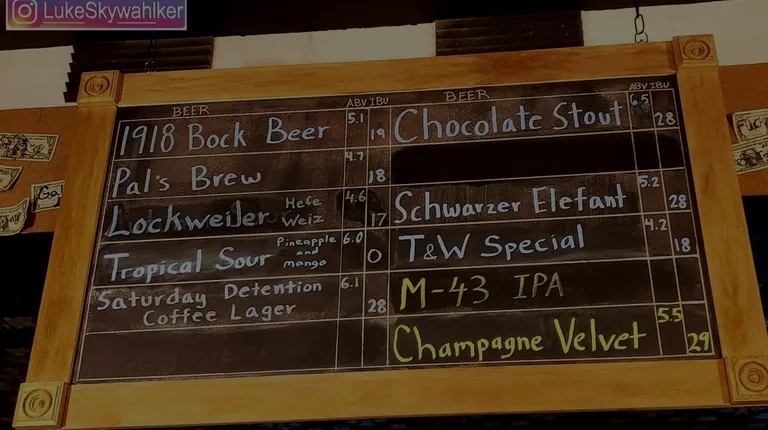 LukeSkywahlker
BEER ABV IBU
1918 Bock Beer 5.1 19
Pal's Brew 4.7 18
Lockweiler Hefe Weiz 4.6 17
Tropical Sour Pineapple and mango 6.0 0
Saturday Detention 6.1
Coffee Lager 28
BEER ABV IBU
Chocolate Stout 6.5 28
Schwarzer Elefant 5.2 28
T&W Special 4.2 18
M-43 IPA
Champagne Velvet 5.5 29
Go